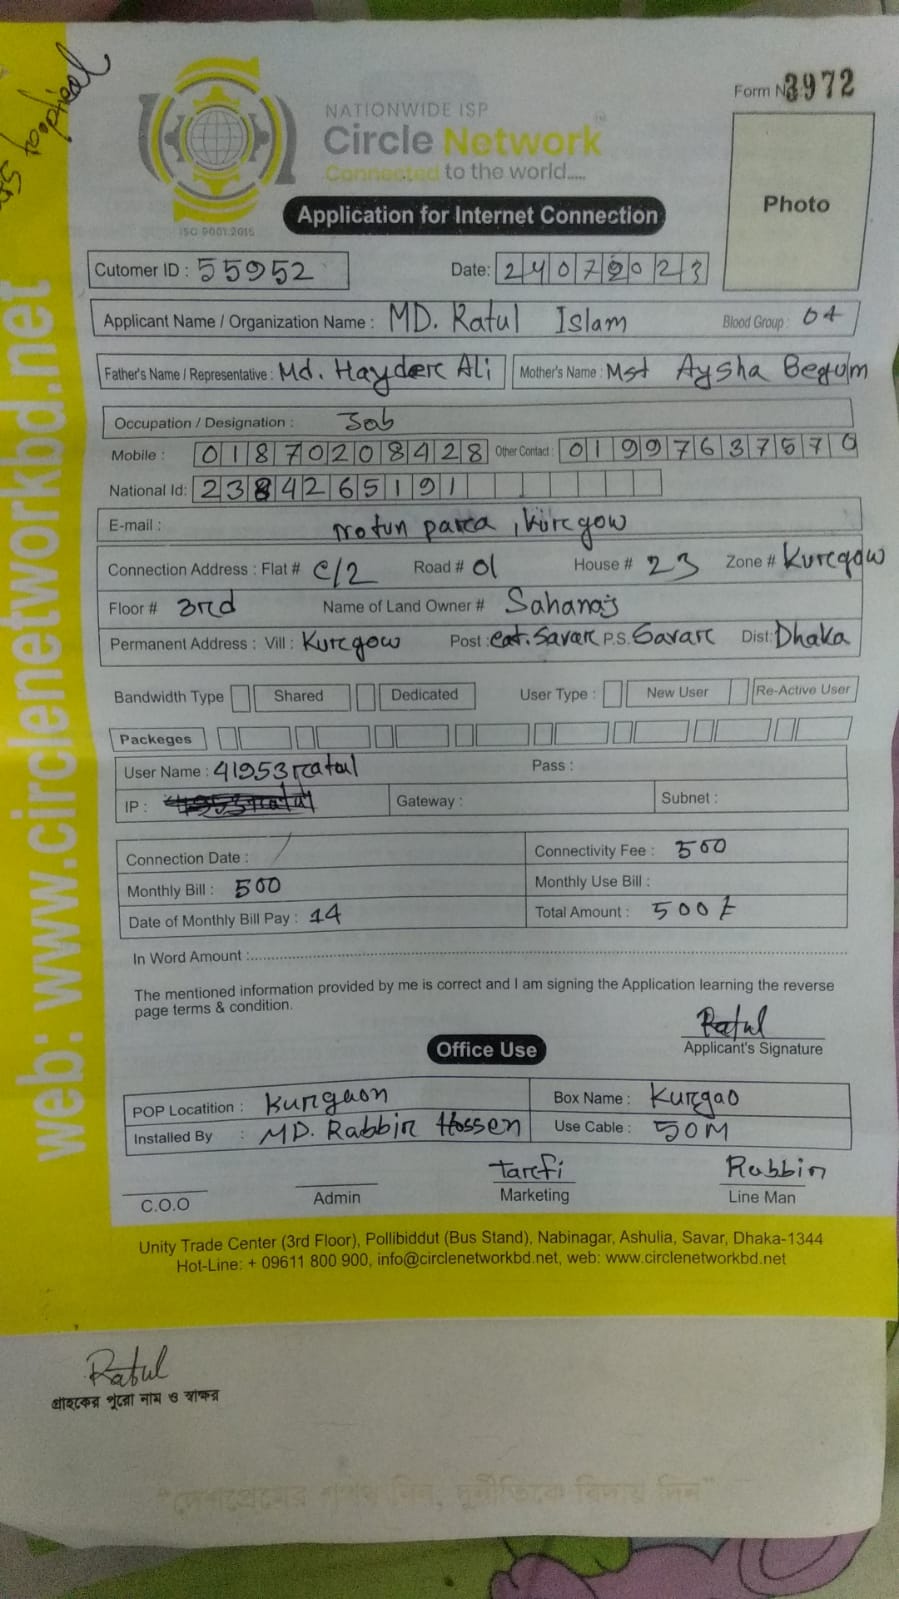 Form No 3972
NATIONWIDE ISP
Circle Network
Connected to the world.....
ISO 9001:2015
Application for Internet Connection
Photo
Cutomer ID : 55952 Date: 24072023
Applicant Name / Organization Name : MD. Ratul Islam Blood Group : O+
Father's Name / Representative : Md. Hayder Ali Mother's Name : Mst Aysha Begum
Occupation / Designation : Job
Mobile : 01870208428 Other Contact : 01997637570
National Id: 2384265191
E-mail : notun para , Kurgow
Connection Address : Flat # C/2 Road # 01 House # 23 Zone # Kurgow
Floor # 3rd Name of Land Owner # Sahanaj
Permanent Address : Vill : Kurgow Post : eat. Savar P.S. Savar Dist: Dhaka
Bandwidth Type Shared Dedicated User Type : New User Re-Active User
Packeges
User Name : 41953ratul Pass :
IP : Gateway : Subnet :
Connection Date : Connectivity Fee : 500
Monthly Bill : 500 Monthly Use Bill :
Date of Monthly Bill Pay : 14 Total Amount : 500
In Word Amount :
The mentioned information provided by me is correct and I am signing the Application learning the reverse
page terms & condition.
Ratul
Applicant's Signature
Office Use
POP Locatition : Kurgaon Box Name : Kurgao
Installed By : MD. Rabbir Hossen Use Cable : 50M
Tarfi Rabbin
C.O.O Admin Marketing Line Man
Unity Trade Center (3rd Floor), Pollibiddut (Bus Stand), Nabinagar, Ashulia, Savar, Dhaka-1344
Hot-Line: + 09611 800 900, info@circlenetworkbd.net, web: www.circlenetworkbd.net
web: www.circlenetworkbd.net
Ratul
গ্রাহকের পুরো নাম ও স্বাক্ষর
"দেশপ্রেমের শপথ নিন, দুর্নীতিকে বিদায় দিন"